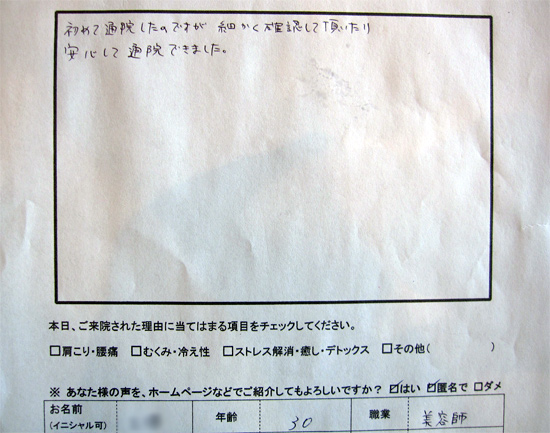 初めて通院したのですが 細かく確認して頂いたり
安心して通院できました。
本日、ご来院された理由に当てはまる項目をチェックしてください。
□肩こり・腰痛 □むくみ・冷え性 □ストレス解消・癒し・デトックス □その他( )
※ あなた様の声を、ホームページなどでご紹介してもよろしいですか? ☑はい ☑匿名で □ダメ
お名前 年齢 30 職業 美容師
(イニシャル可)